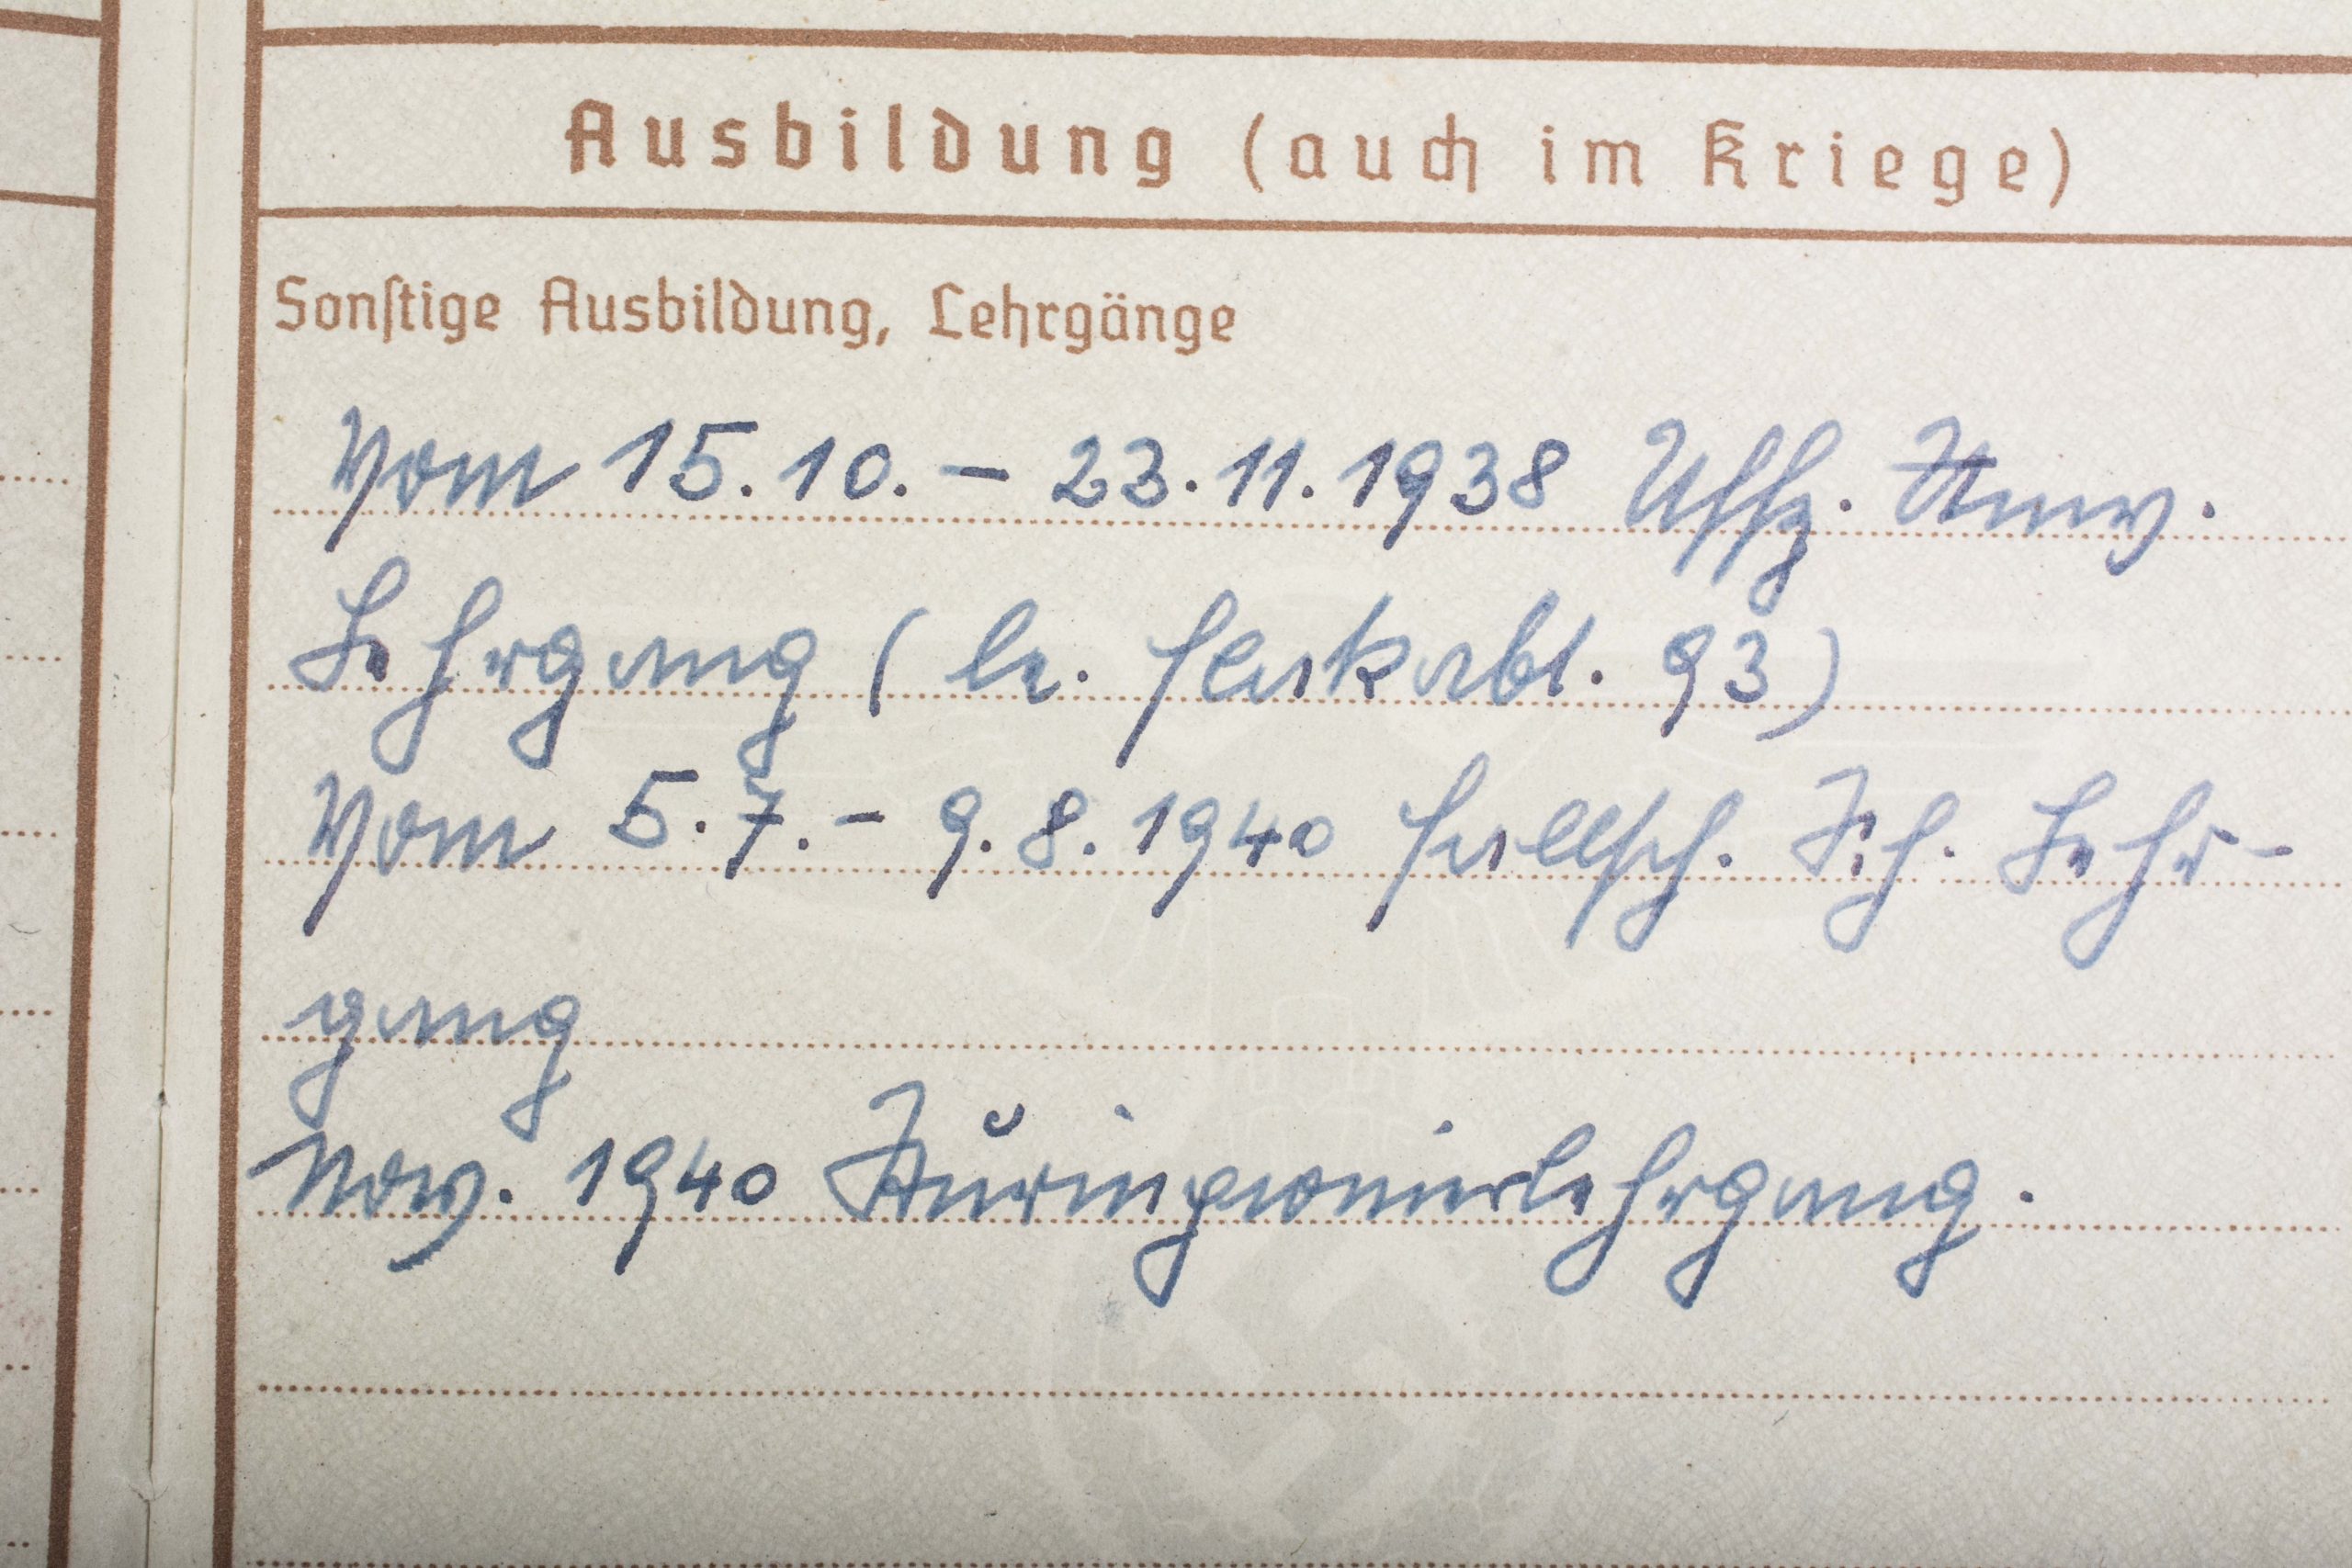 Ausbildung (auch im Kriege)
Sonſtige Ausbildung, Lehrgänge
Vom 15.10. – 23.11.1938 Uffz. Anw.
Lehrgang (le. Flakabt. 93)
Vom 5.7. – 9.8.1940 Fallsch. Sch. Lehr-
gang
Nov. 1940 Sturmpionierlehrgang.